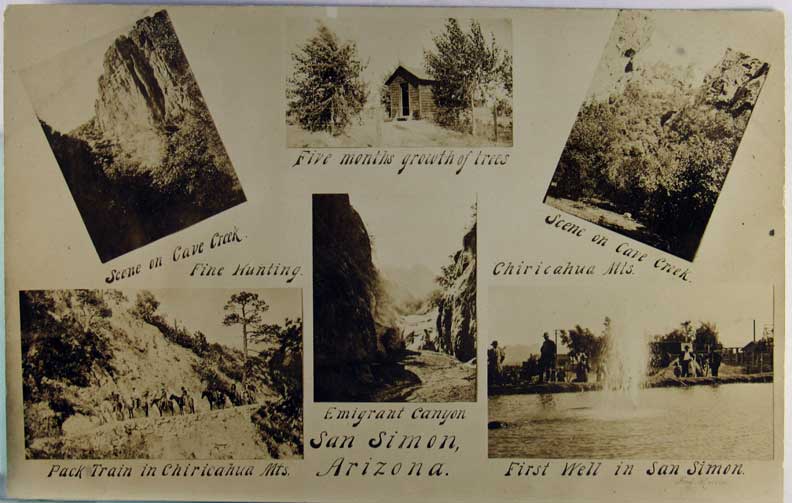 Five months growth of trees
Scene on Cave Creek.
Scene on Cave Creek.
Fine Hunting.
Chiricahua Mts.
Emigrant Canyon
San Simon,
Arizona.
Pack Train in Chiricahua Mts.
First Well in San Simon.